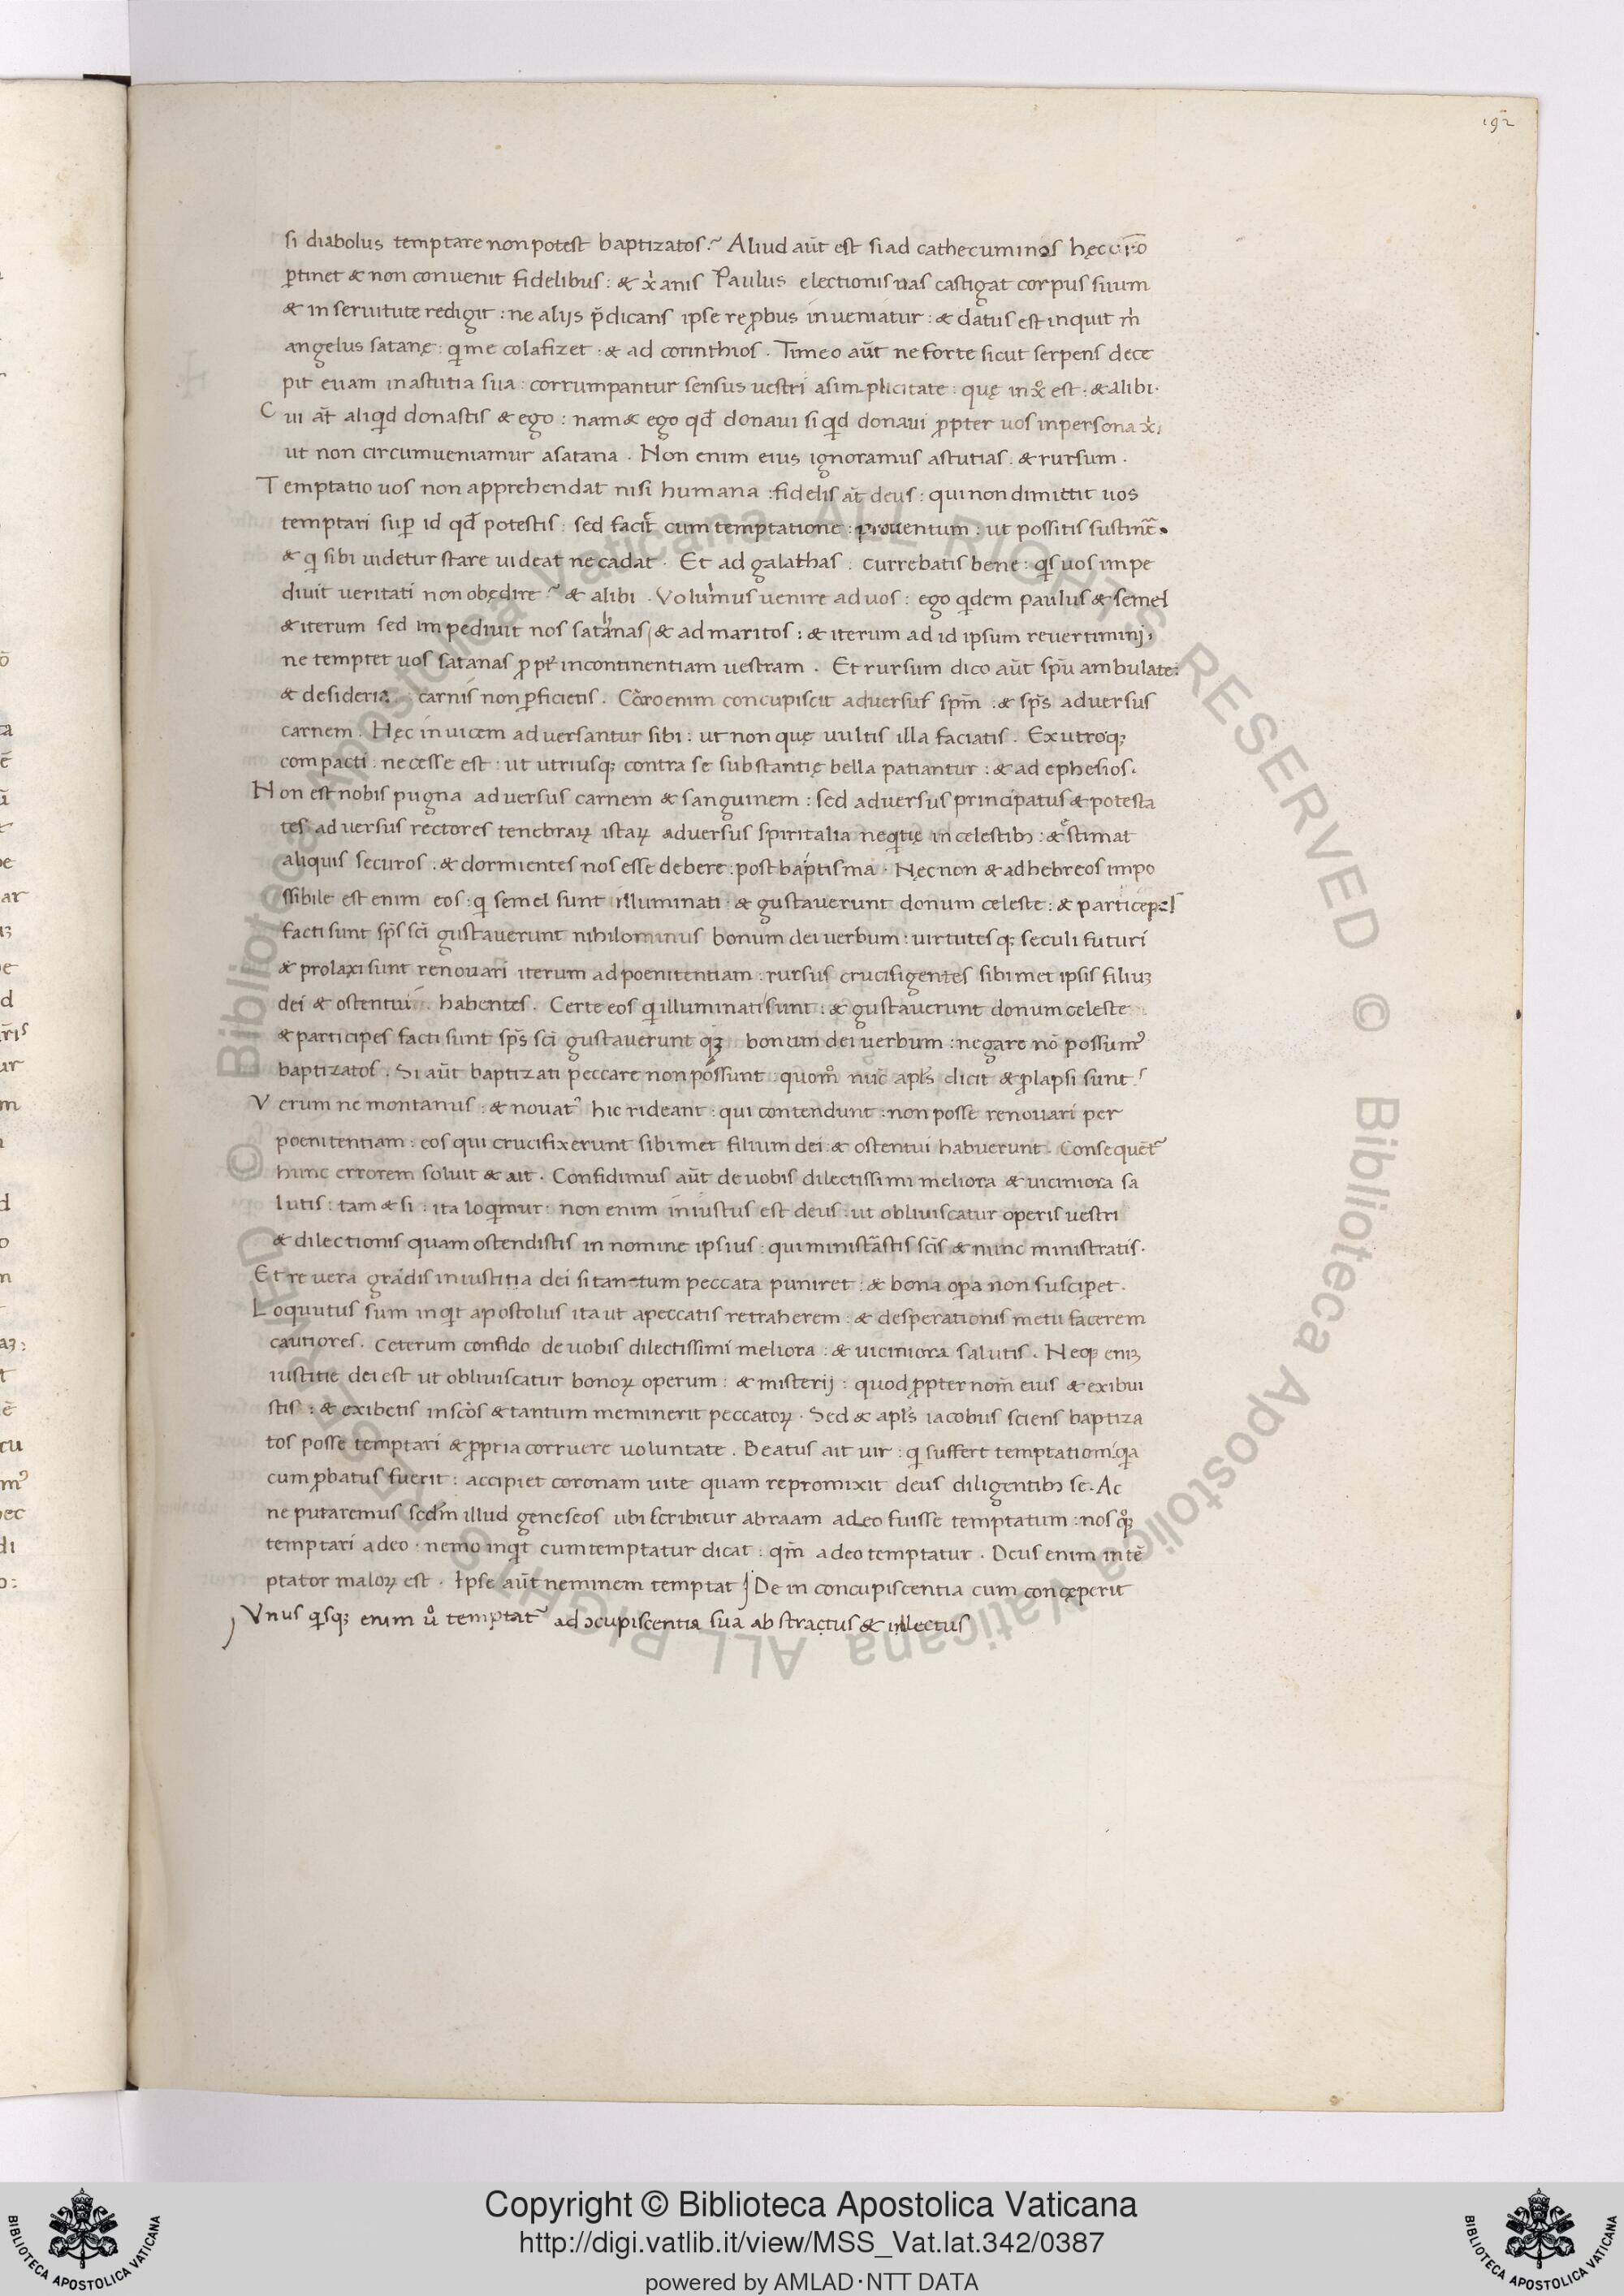 192
si diabolus temptare non potest baptizatos? Aliud aūt est si ad cathecuminos hęc
ꝑtinet & non convenit fidelibus: & xp̄ianis Paulus electionis uas castigat corpus suum
& in seruitute redigit: ne alijs p̄dicans ipse reꝓbus inveniatur: & datus est inquit m̓
angelus satanę: qi me colafizet: & ad corinthios. Timeo aūt ne forte sicut serpens dece
pit evam in astutia sua: corrumpantur sensus uestri a simplicitate: quę in xº est: & alibi.
Cui āt aliqd donastis & ego: nam & ego qd̄ donavi si qd donavi ꝓpter uos in persona xi
ut non circumueniamur a satana. Non enim eius ignoramus astutias. & rursum.
Temptatio uos non apprehendat nisi humana: fidelis āt deus: qui non dimittit uos
temptari suꝑ id qd̄ potestis: sed faciet cum temptatione: proventum: ut possitis sustinē.
& qi sibi uidetur stare uideat ne cadat. Et ad galathas. currebatis bene: qis uos impe
divit veritati non obędire? & alibi. Voluimus uenire ad uos: ego qidem paulus & semel
& iterum sed impedivit nos sathanas & ad maritos: & iterum ad id ipsum revertiminj,
ne temptet uos satanas ꝓpt̓ incontinentiam vestram. Et rursum dico aūt spū ambulate:
& desideria carnis non ꝑficietis. Caro enim concupiscit adversus spm̄. & sps̄ adversus
carnem. Hęc invicem adversantur sibi: ut non quę uultis illa faciatis. Ex utroq;
compacti: necesse est: ut utriusq; contra se substantię bella patiantur: & ad ephesios.
Non est nobis pugna adversus carnem & sanguinem: sed adversus principatus & potesta
tes adversus rectores tenebraꝝ istaꝝ adversus spiritalia neqitię in celestibꝫ: & estimat
aliquis securos. & dormientes nos esse debere: post baptisma. Nęcnon & ad hebreos impo
ssibile est enim eos: qi semel sunt illuminati & gustaverunt donum celeste: & participes
facti sunt sps̄ scī gustaverunt nihilominus bonum dei verbum: uirtutesq; seculi futuri
& prolaxi sunt renovari iterum ad poenitentiam: rursus crucifigentes sibimet ipsis filiuꝫ
dei & ostentui habentes. Certe eos qi illuminati sunt: & gustaverunt donum celeste
& participes facti sunt sps̄ scī gustaverunt qꝫ bonum dei verbum: negare nō possumꝰ
baptizatos. Si aūt baptizati peccare non possunt: quomº nūc apls̄ dicit & ꝓlapsi sunt?
Verum ne montanus: & novatꝰ hic rideant: qui contendunt: non posse renovari per
poenitentiam: eos qui crucifixerunt sibimet filium dei: & ostentui habuerunt. Consequēt᷑
hunc errorem soluit & ait. Confidimus aūt de vobis dilectissimi meliora & viciniora sa
lutis: tam & si: ita loqimur: non enim iniustus est deus: ut obliviscatur operis vestri
& dilectionis quam ostendistis in nomine ipsius: qui ministrastis scīs & nunc ministratis.
Et re vera grādis iniustitia dei si tantum peccata puniret: & bona oꝑa non susciꝑet.
Loquutus sum inqit apostolus ita ut a peccatis retraherem: & desperationis metu facerem
cautiores. Ceterum confido de vobis dilectissimi meliora: & viciniora salutis. Neq; eniꝫ
iustitie dei est ut obliviscatur bonoꝝ operum: & misterij: quod ꝓpter nom̄ eius & exibui
stis: & exibetis in scōs & tantum meminerit peccatoꝝ. Sed & apls̄ iacobus sciens baptiza
tos posse temptari & ꝓpria corruere voluntate. Beatus ait uir: qi suffert temptationē: qia
cum ꝓbatus fuerit: accipiet coronam uite quam repromixit deus diligentibꝫ se. Ac
ne putaremus scdm̄ illud geneseos ubi scribitur abraam a deo fuisse temptatum: nos qºqꝫ
temptari a deo. nemo inqit cum temptatur dicat: qm̄ a deo temptatur. Deus enim intē
ptator maloꝝ est. Ipse aūt neminem temptat De in concupiscentia cum concęperit
Vnus qisq; enim uº temptat᷑ ad ɔcupiscentia sua abstractus & illectus
Copyright © Biblioteca Apostolica Vaticana
http://digi.vatlib.it/view/MSS_Vat.lat.342/0387
powered by AMLAD·NTT DATA
BIBLIOTECA APOSTOLICA VATICANA
BIBLIOTECA APOSTOLICA VATICANA
© Biblioteca Apostolica Vaticana ALL RIGHTS RESERVED © Biblioteca Apostolica Vaticana ALL RIGHTS RESERVED